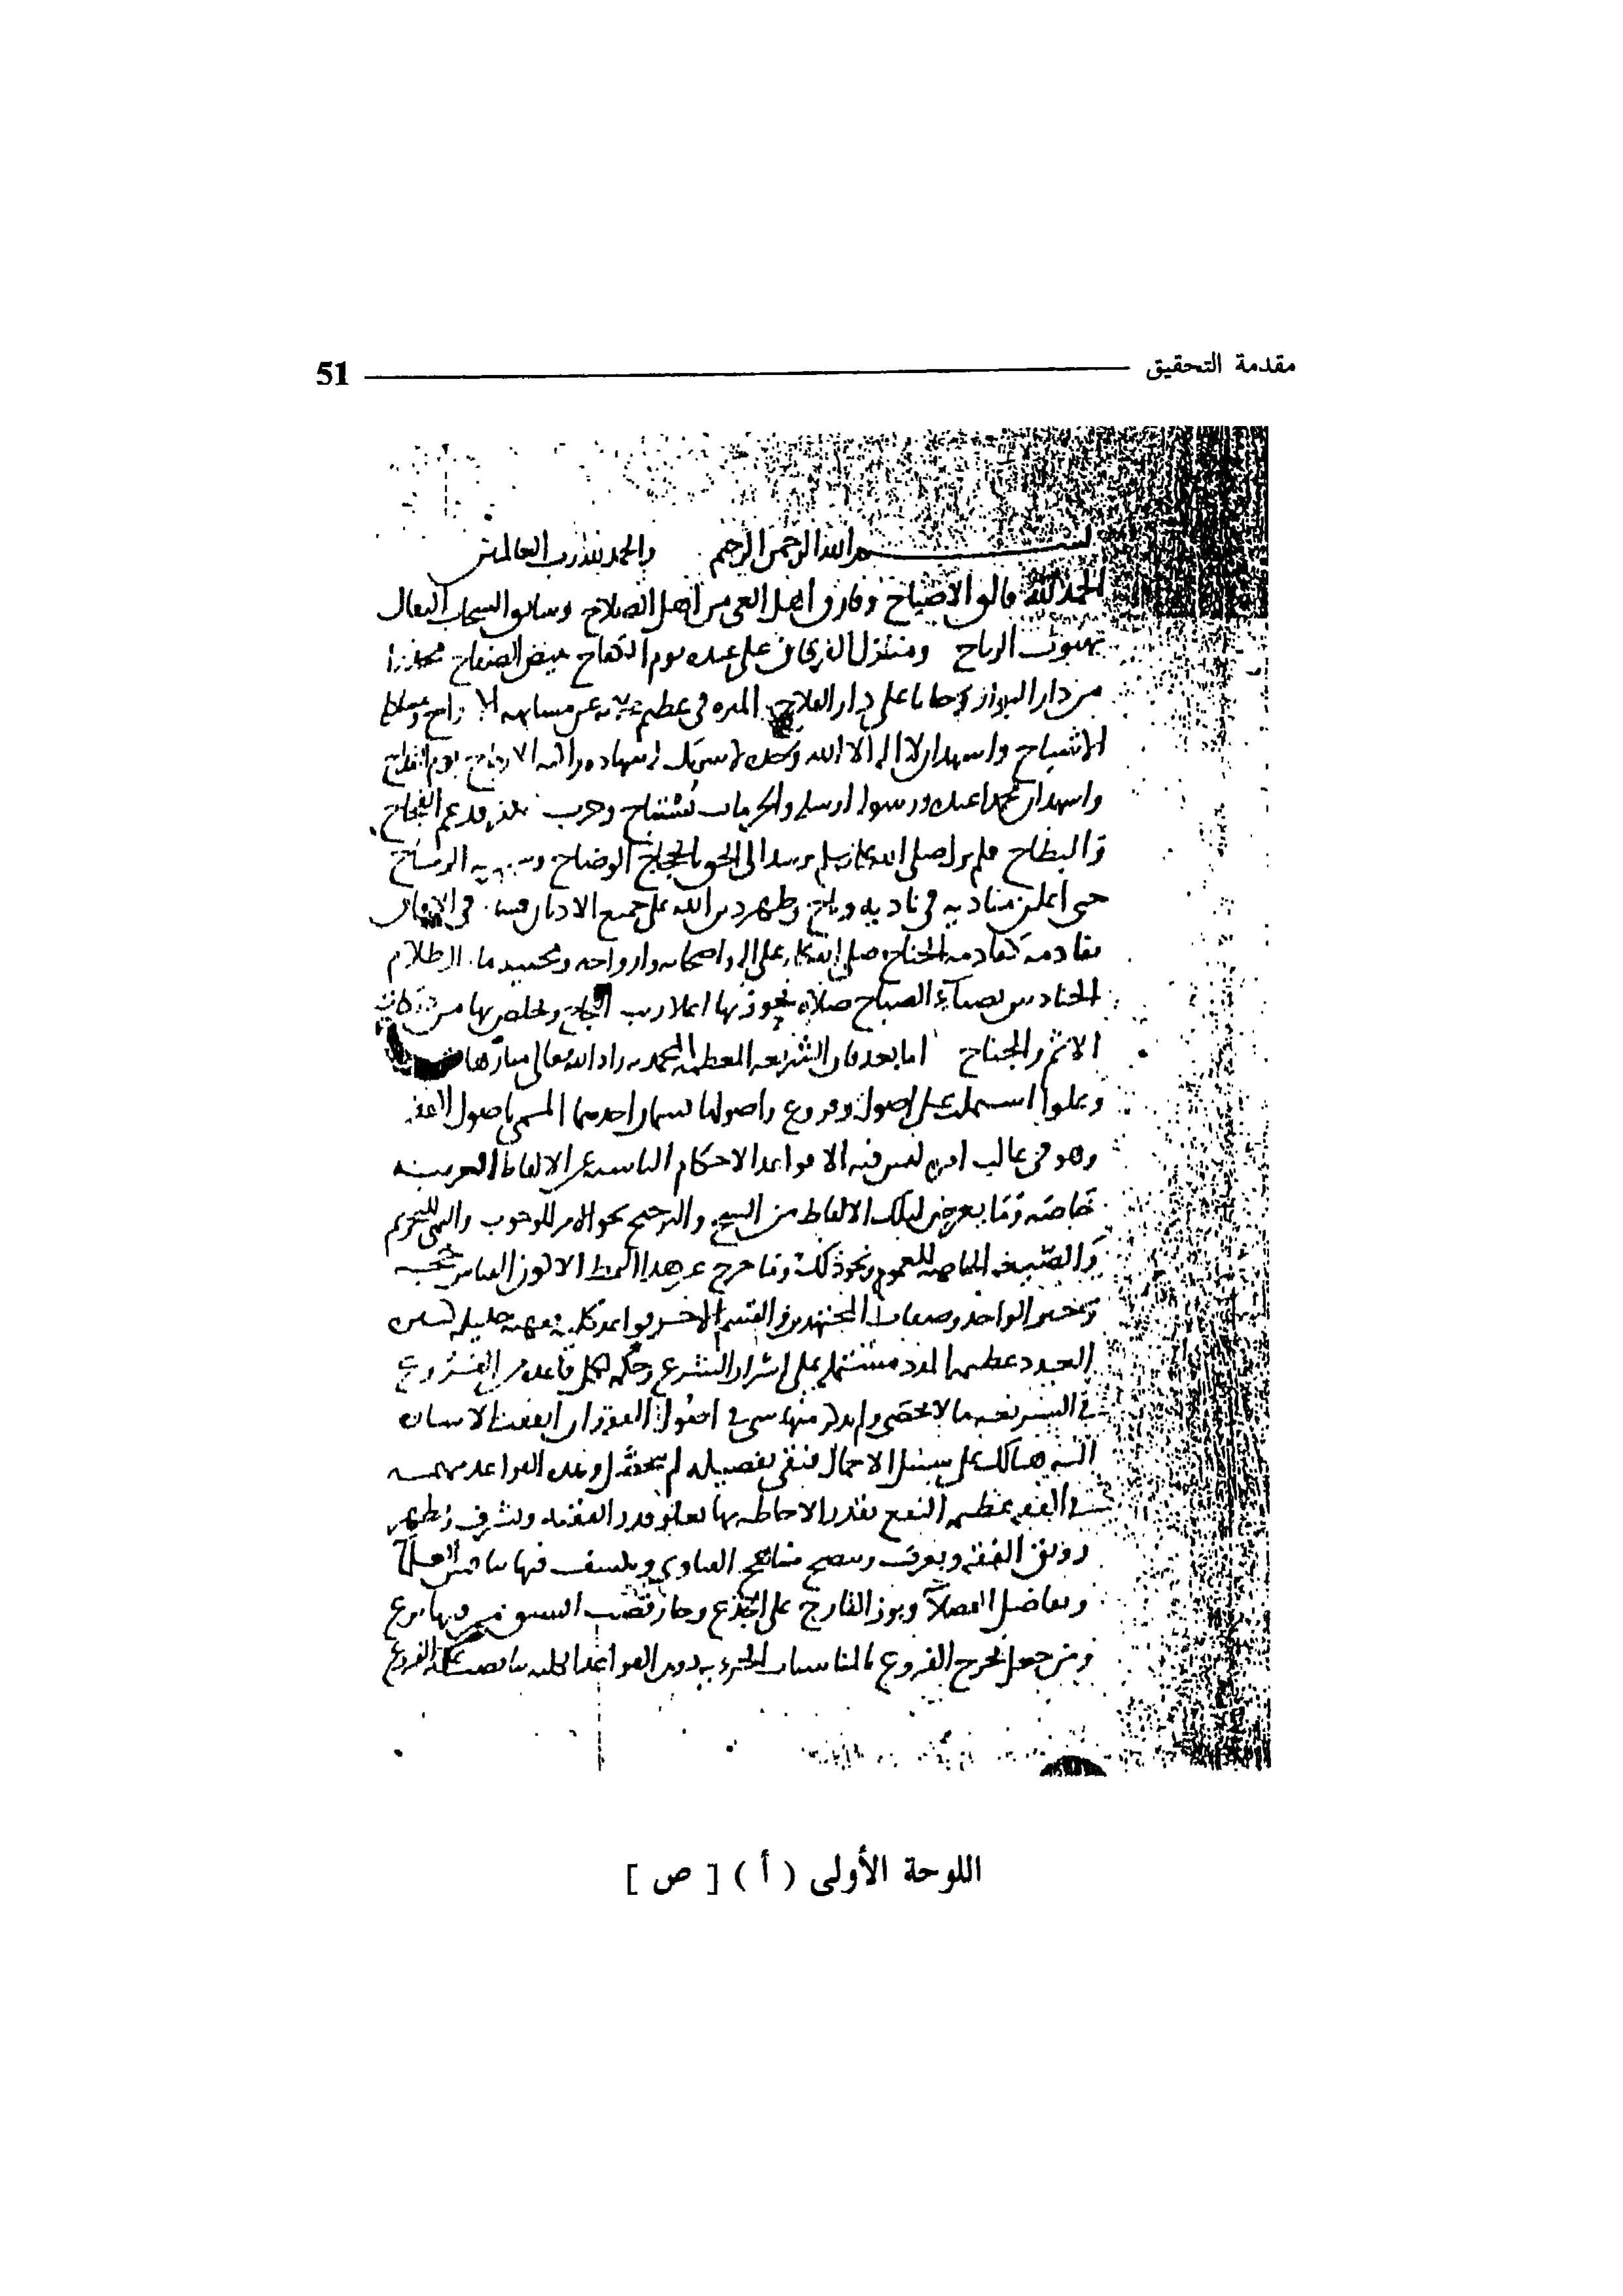 مقدمة التحقيق 51
بسم الله الرحمن الرحيم والحمد لله رب العالمين
الحمد لله فالق الاصباح وفارق اهل الغي من اهل الصلاح وسائق السحاب الثقال
بهبوب الرياح ومنزل الفرقان على عبده يوم الكفاح ببيض الصفاح محذرا
من دار البوار وحاثا على دار الفلاح المنزه في عظم عن مشابهه
الاشباح واشهد ان لا اله الا الله وحده لا شريك له شهاده
واشهد ان محمدا عبده ورسوله ارسله والحرمات تستباح وحزب قد عم الفجاج
والبطاح فلم يزل صلى الله عليه وسلم يرشد الى الحق بالحجاج الوضاح
حتى اعلن مناديه في ناديه وباح وظهر دين الله على جميع الاديان في الافاق
بقادمه كقادمه الجناح صلى الله عليه وعلى اله واصحابه وازواجه ومحبيه ما الظلام
الحنادس بضياء الصباح صلاه نحوز بها اعلا رتب النجاح ونخلص بها من دركات
الاثم والجناح اما بعد فان الشريعه المعظمه المحمديه زاد الله تعالى منارها
وعلوا اشتملت على اصول وفروع واصولها قسمان احدهما المسمى باصول الفقه
وهو في غالب امره ليس فيه الا قواعد الاحكام الناشيه عن الالفاظ العربيه
خاصه وما يعرض لتلك الالفاظ من النسخ والترجيح نحو الامر للوجوب والنهي للتحريم
والصيغه الخاصه للعموم ونحو ذلك وما خرج عن هذا النمط الا كون القياس حجه
وخبر الواحد وصفات المجتهدين والقسم الاخر قواعد كليه فقهيه جليله كثيره
العدد عظيمه المدد مشتمله على اسرار الشرع وحكمه لكل قاعده من الفروع
في الشريعه ما لا يحصى ولم يذكر منها شي في اصول الفقه وان اتفقت الاشاره
اليه هنالك على سبيل الاجمال فبقي تفصيله لم يتحصل وهذه القواعد مهمه
في الفقه عظيمه النفع بقدر الاحاطه بها يعلو قدر الفقيه ويشرف ويظهر
رونق الفقه ويعرف وتتضح مناهج الفتاوى وتكشف فيها تنافس العلما
وتفاضل الفضلا وبرز القارح على الجذع وحاز قصب السبق من فيها برع
ومن جعل يخرج الفروع بالمناسبات الجزءيه دون القواعد الكليه تناقضت عليه الفروع
اللوحة الأولى ( أ ) [ ص ]